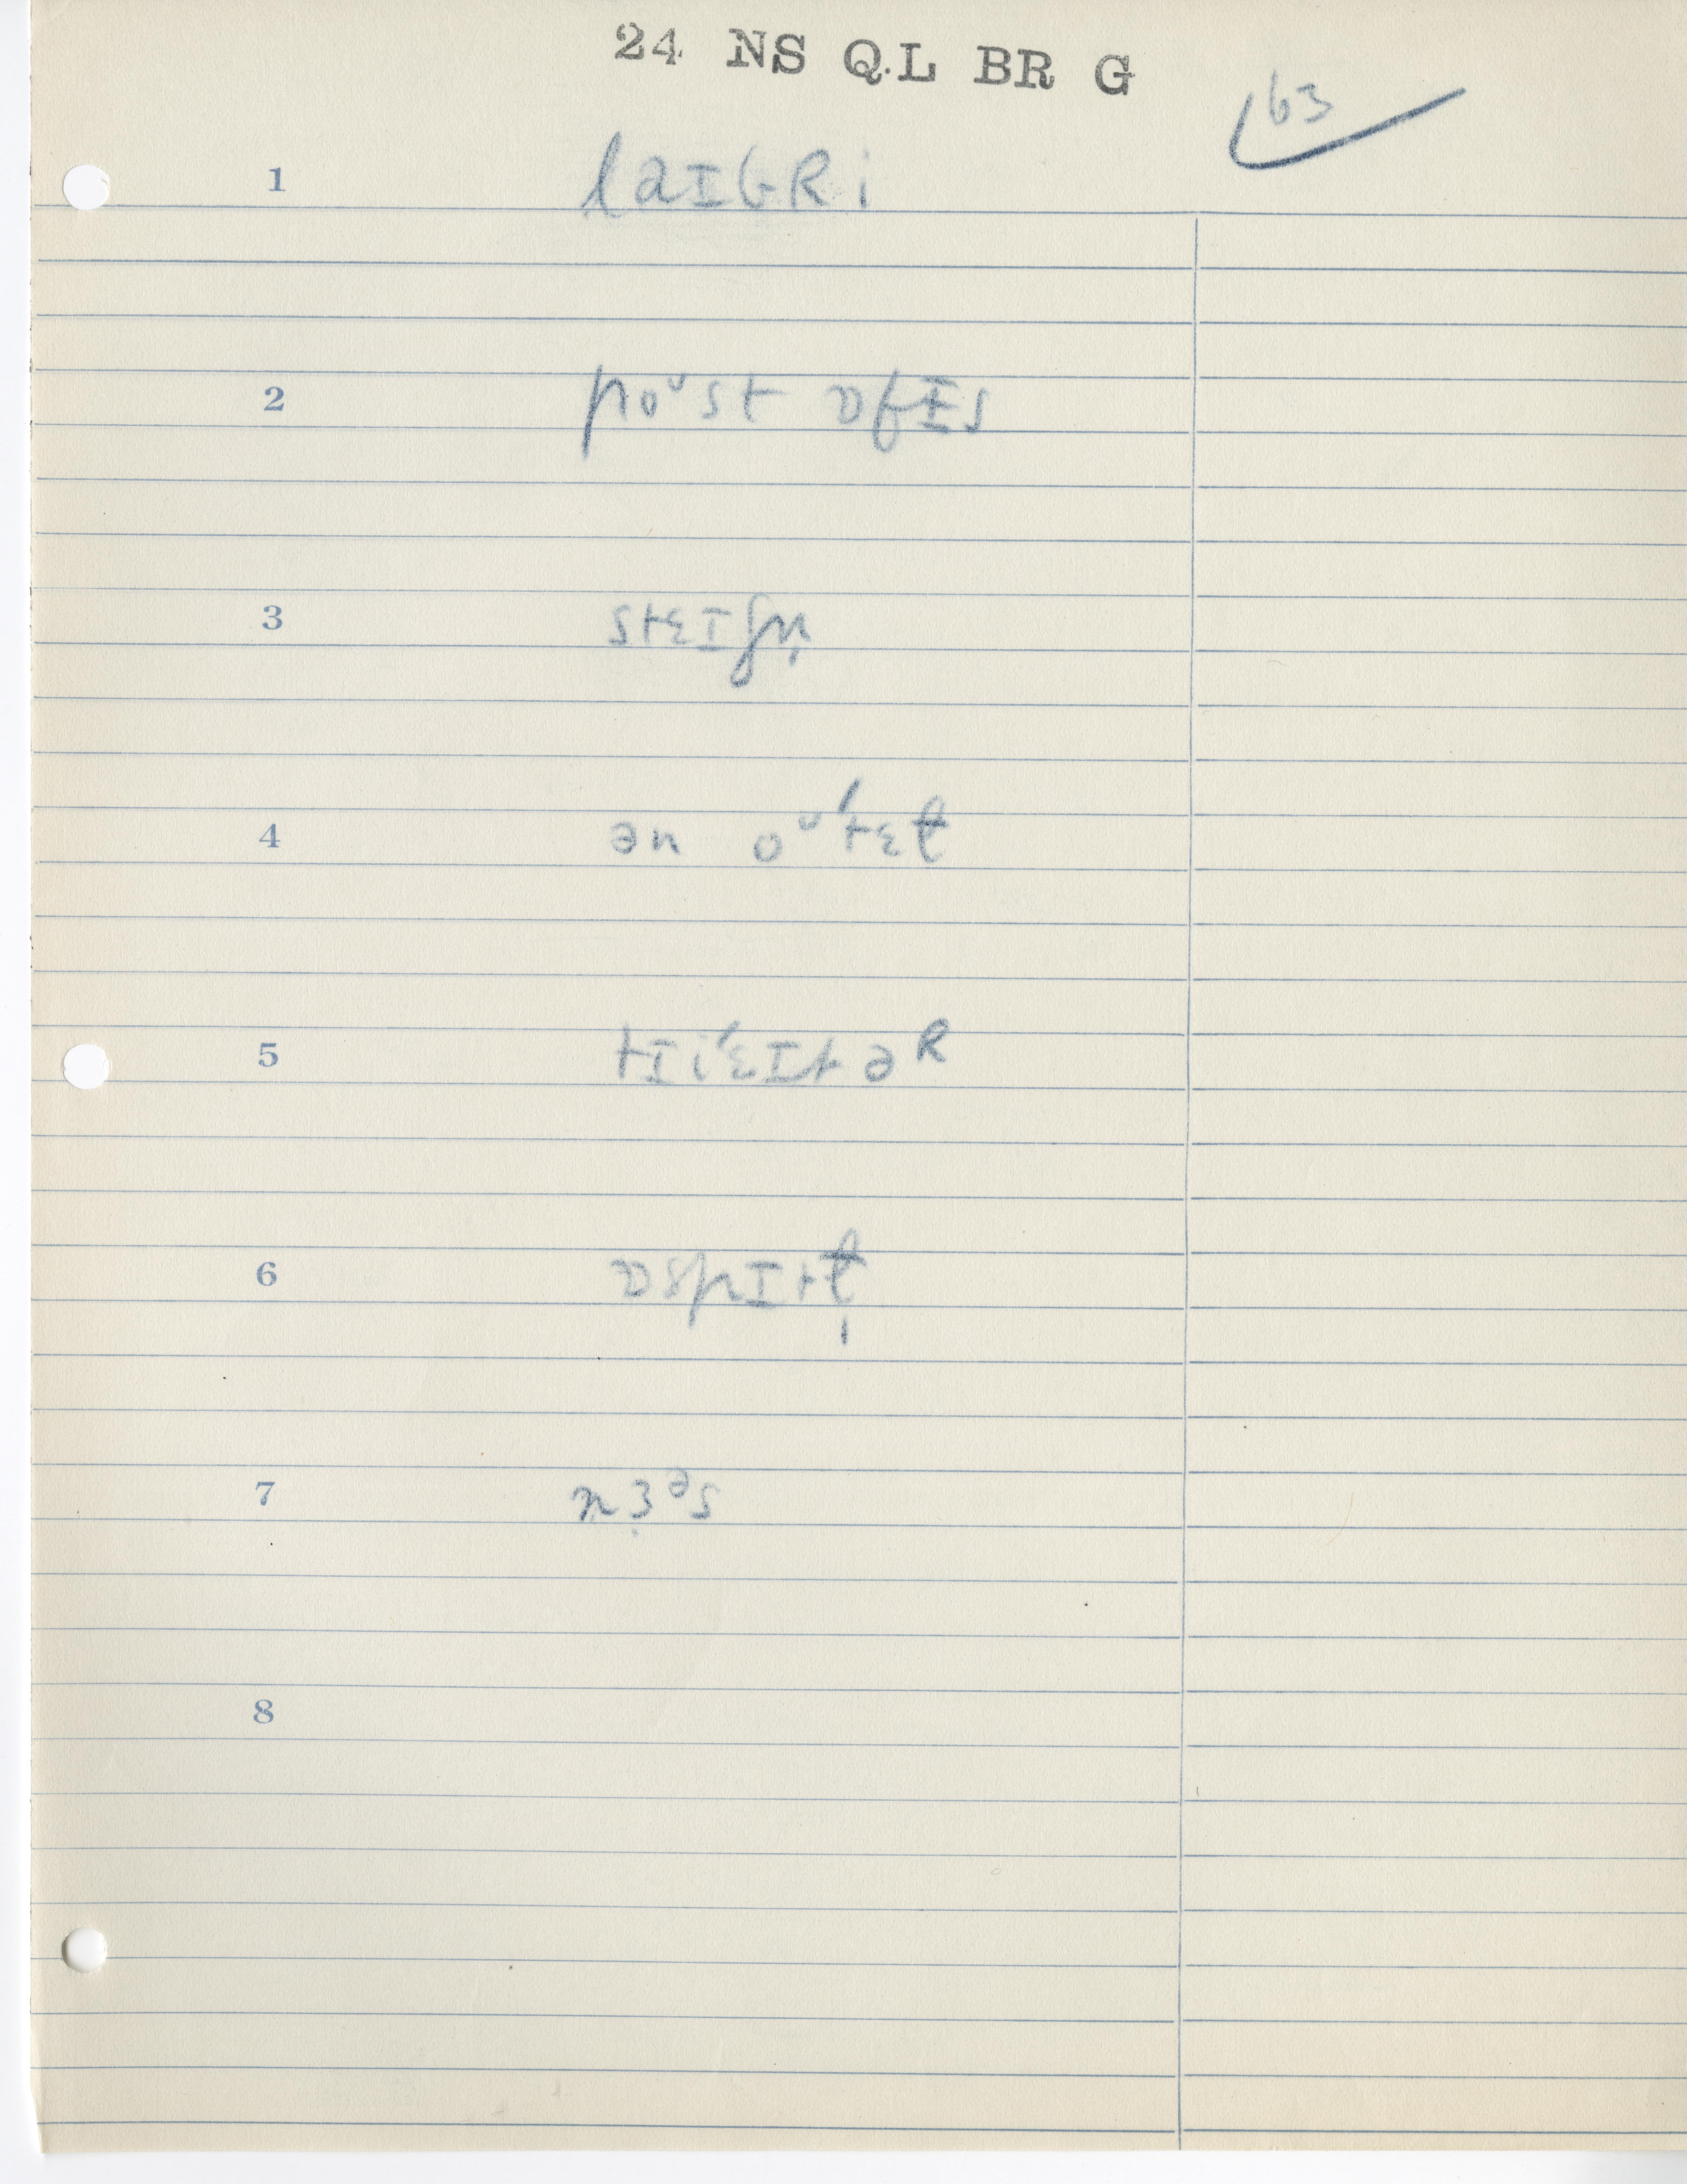 24 NS QL BR G
63
1 laɪbʀi
2 poᶷst ɒfɪs
3 stɛɪʃn̩
4 ən oᶷ'tɛɫ
5 tɪi'ɛɪtəᴿ
6 ɒspɪtɫ̩
7 nɜᵊs
8